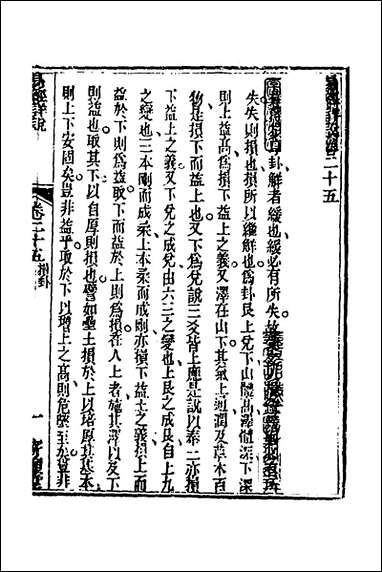 二十五
卦解者緩也緩必有所失故
失失則損也損所以繼解也為卦艮上兌下山體高澤體深下深
則上益高為損下益上之義又澤在山下其氣上通潤及草木百
物是損下而益上也又下為兌說三爻皆上應是說以奉上亦損
下益上之義又下兌之成兌由六三之變也上艮之成艮自上九
之變也三本剛而成柔上本柔而成剛亦損下益上之義損上而
益於下則為益取下而益於上則為損在人上者施其澤以及下
則益也取其下以自厚則損也譬如壘土損於上以培厚其基本
則上下安固矣豈非益乎取於下以增上之高則危墜至矣豈非
易經詳說
卷二十五 損卦
一